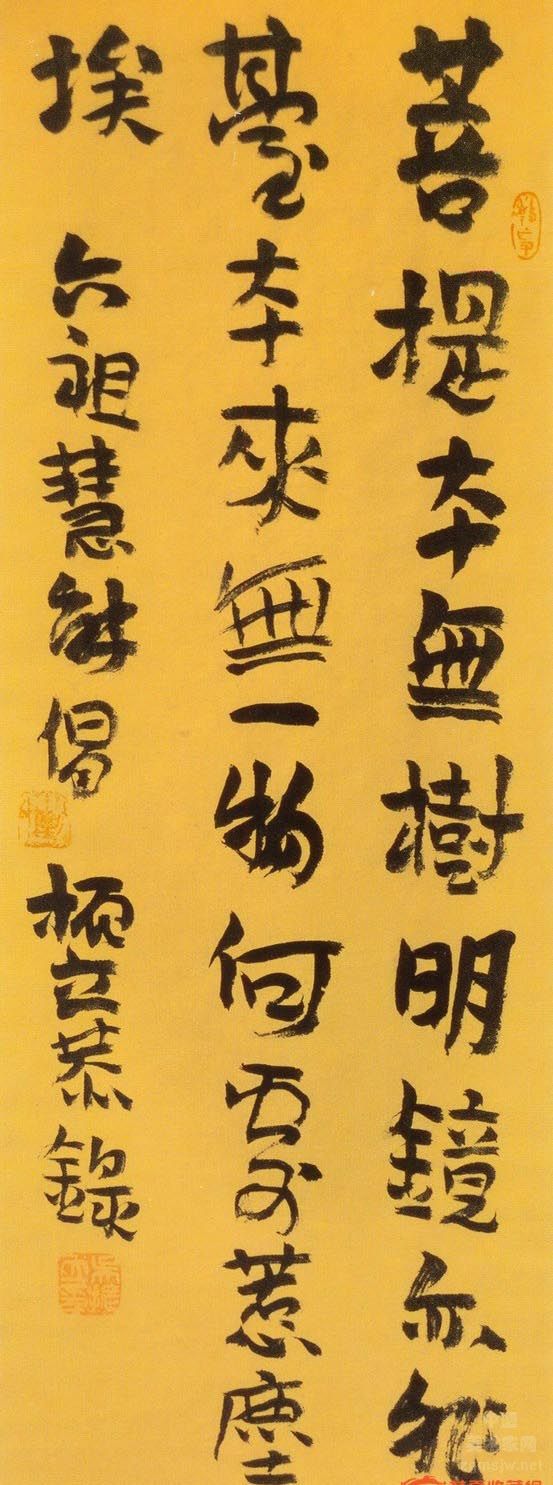 菩提本無樹明鏡亦非
臺本來無一物何處惹塵
埃 六祖慧能偈 立恭錄
家网
zgmsjw.net